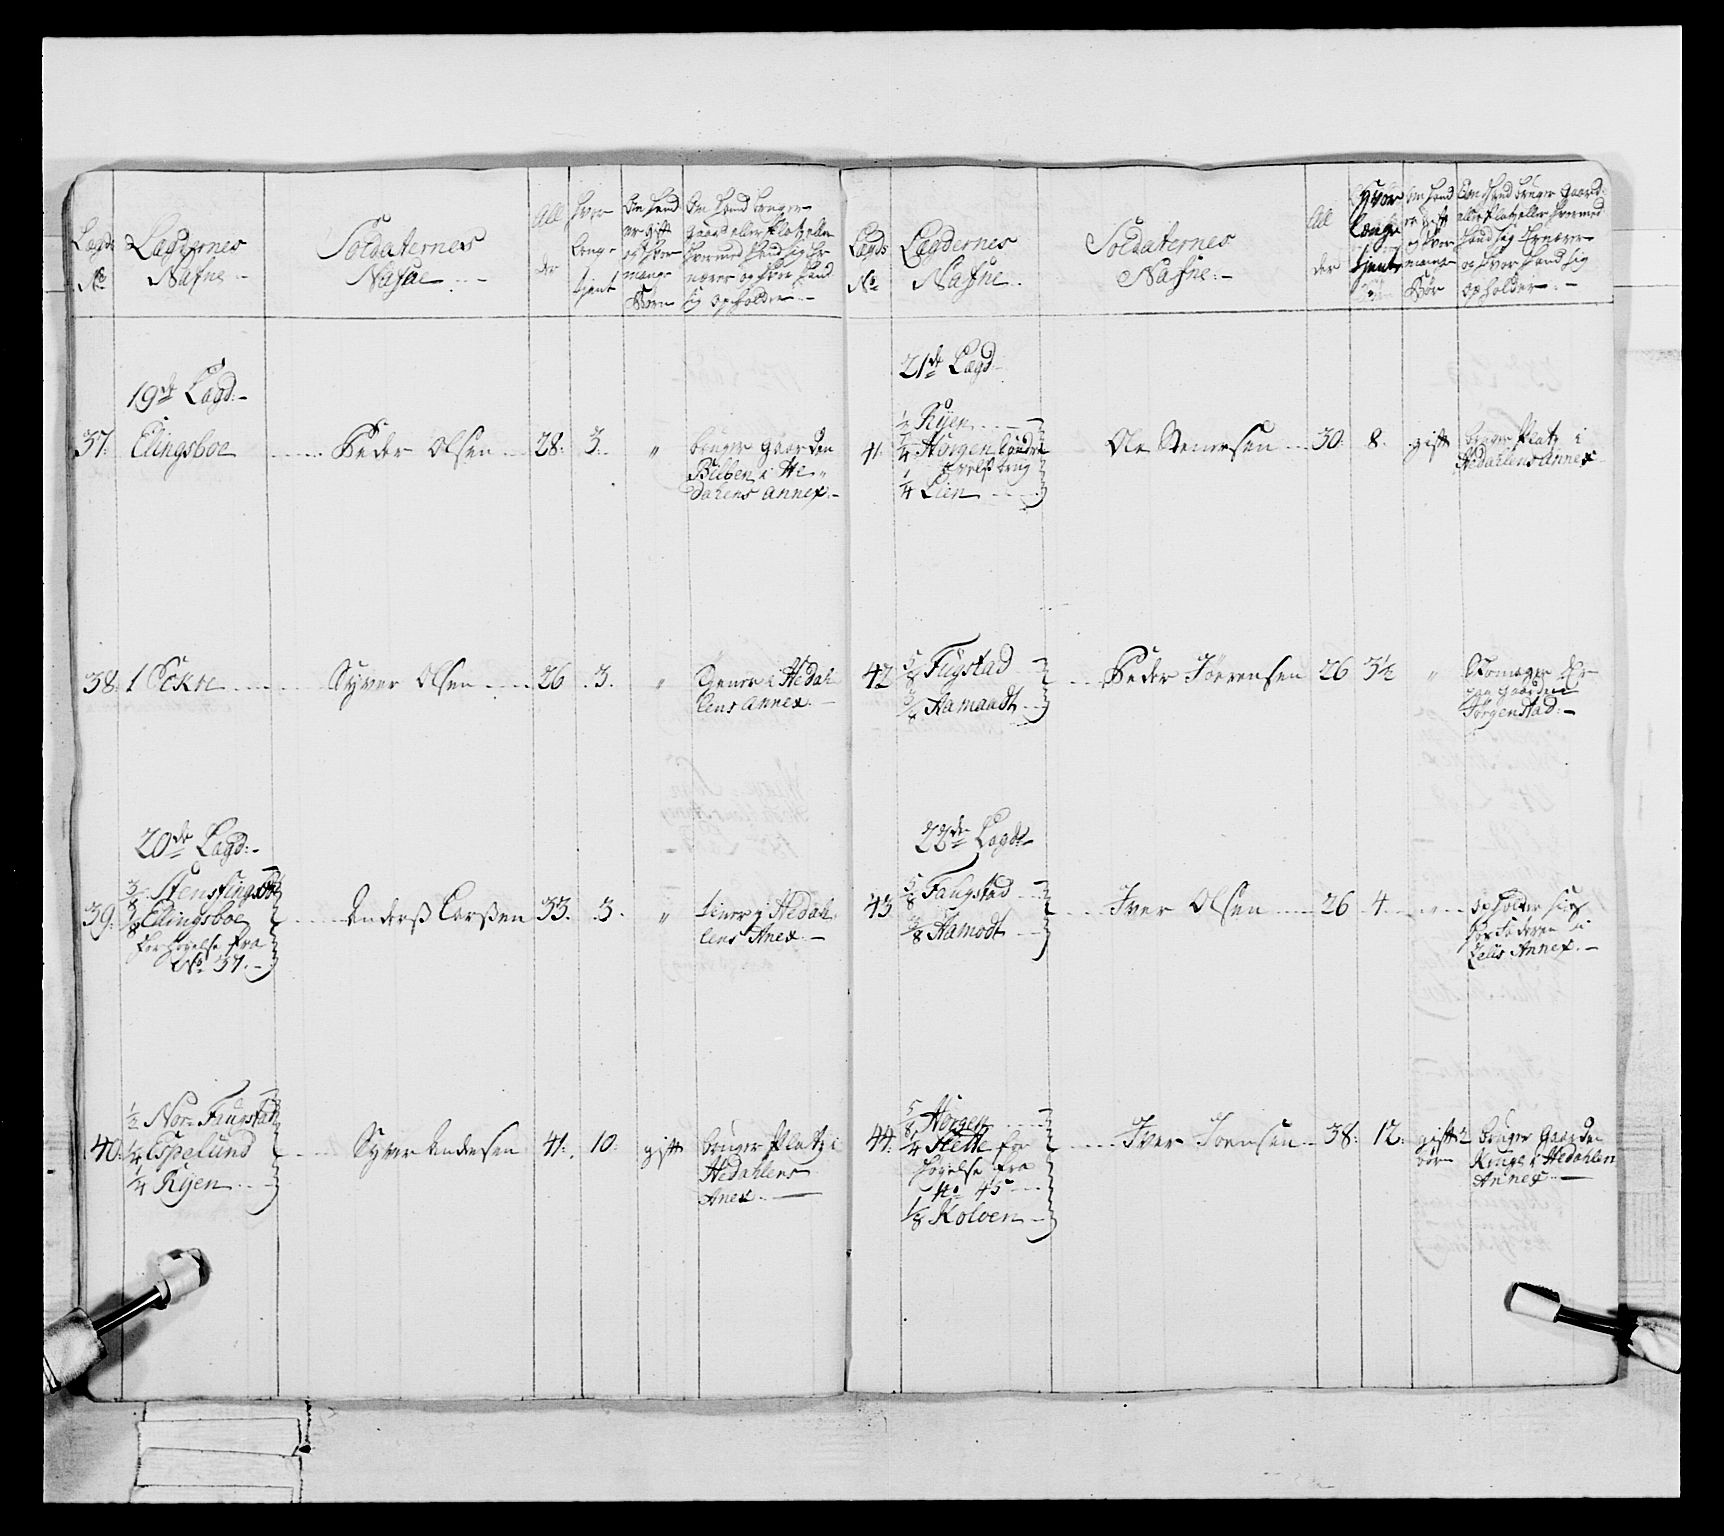 Lægds
No
Lægdernes
Nafne
Soldaternes
Nafne
All
der
hvor
længe
tjent
Om hand
er gift
og hvor
mange
Børn
Om hand bruger
gaard eller Platz eller
hvormed hand sig er
nærer og hvor hand
sig opholder
19de Lægd
37. Elingsboe Peder Olsen 28. 3. "
bruger gaarden
i He
dalens annex
38. 1 Sekse Syver Olsen 26 3. "
tiener i Hedah
lens annex
20de Lægd
39. 3/8
7/8 Elingsboe
forhøyelse fra
No 37.
Anderß Larßen 33. 3. "
tiener i Hedah
lens Anex
40. 1/2 Nor Faugstad
1/4 Espelund
1/4 Kyen
Syver Andersen 41. 10. gift
bruger Platz i
Hedahlens
Anex
Lægds
No
Lægdernes
Nafne
Soldaternes
Nafne
All
der
Hvor
længe
tjent
om hand
er gift
og hvor
mange
Bør
Om Hand bruger Gaard
eller Platz eller hvormed
hand sig ernærer
og hvor hand sig
opholder
21de Lægd
41. 1/2 Kyen
1/4 Horgen
1/4 Lien
Ole Stenersen 30. 8. gift
bruger Platz i
Hedahlens Annex
42 5/8 Fugstad
3/8 Aamaadt
Peder Joerensen 26 3½ "
paa gaarden
Jørgenstad
22de Lægd
43 5/8 Faugstad
3/8 Aamodt
Iver Olsen 26 4. "
opholder sig
hos Faderen i
Annex
44. 5/8 Horgen
1/4 Klette for
høyelse fra
No 45
1/8 Kolven
Iver Joensen 38. 12. gift 2
børn
bruger Gaarden
i Hedahlen
Annex